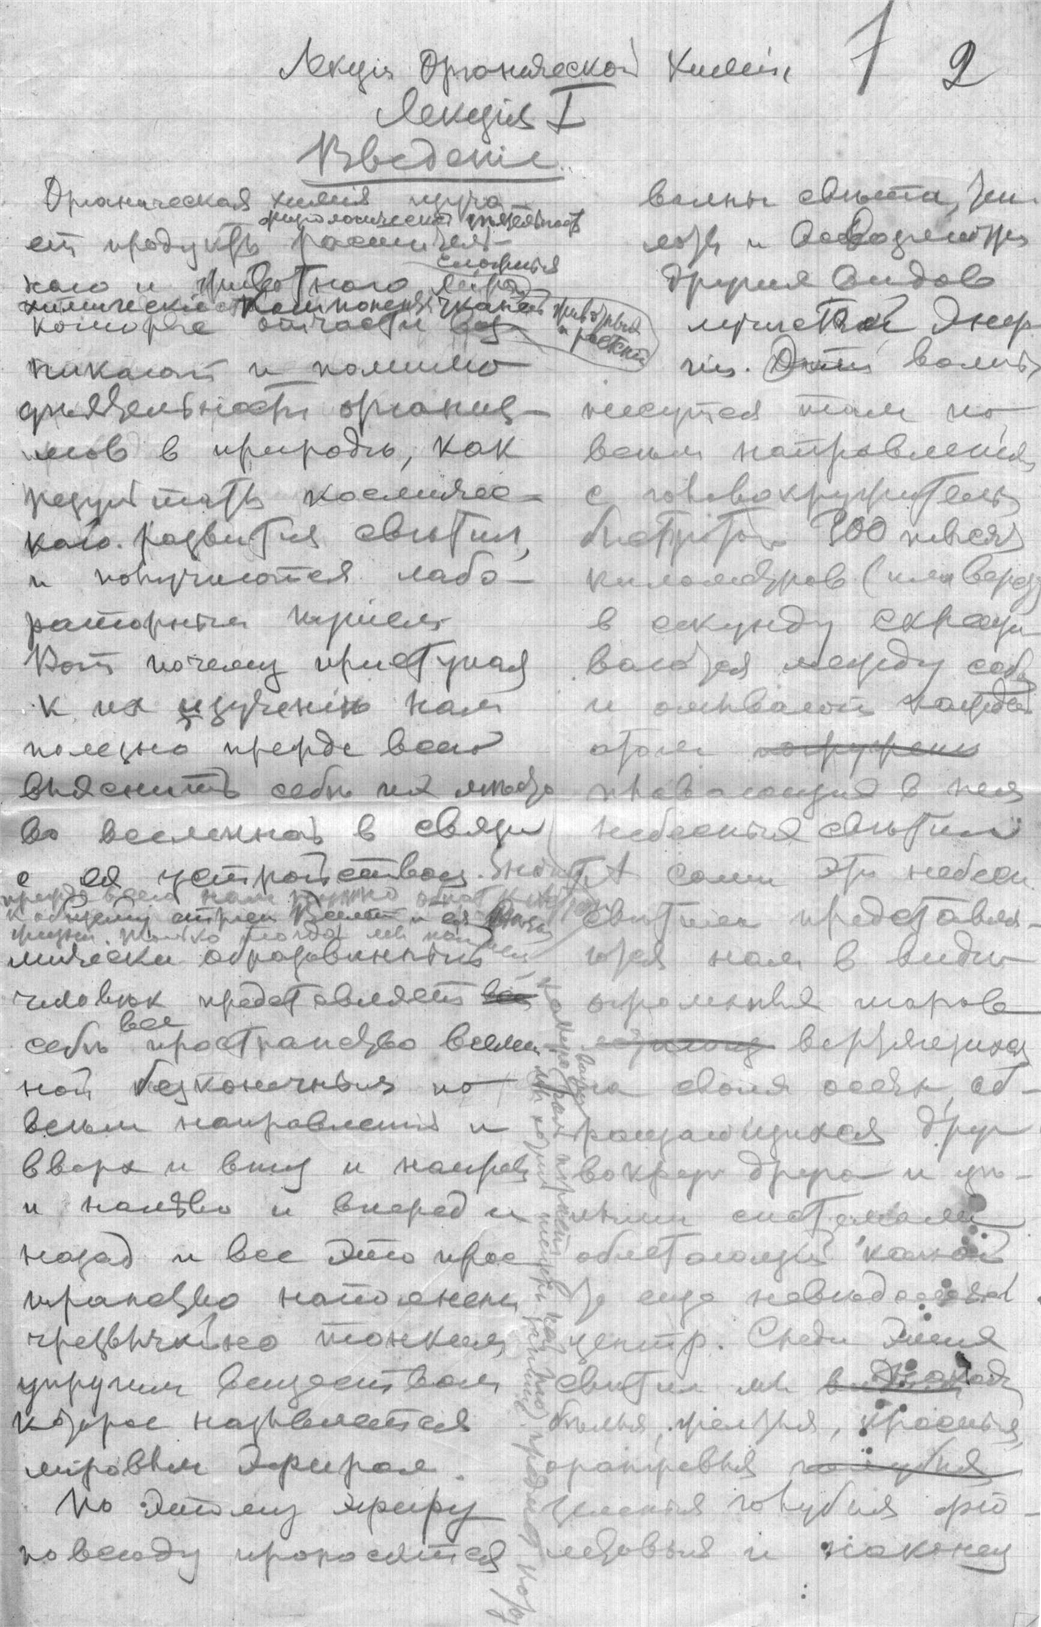 Лекція Органической Химіи
1 2
Лекція I
Введеніе
Органическая химія изуча
физіологической дѣятельности
ет продукты раститель-
сложныя
наго и животнаго мира
химическіе компоненты тканей животных
и растеній
которые отчасти воз
никают и помимо
дѣятельности организ-
мов в природѣ, как
результаты космичес-
каго развитія свѣтил,
и получаются лабо-
раторным путем
Вот почему приступая
к их изученію нам
полезно прежде всего
выяснить себѣ их мѣсто
во вселенной в связи
с ея устройством.
прежде всего нам нужно
к общему строю Вселен и ея
жизни. Только тогда мы
мически образованный
человѣк представляет
себѣ все пространство вселен
ной безконечным по
всем направленіям и
вверх и вниз и направо
и налѣво и вперед и
назад и все это прос
транство наполнено
чрезвычайно тонким
упругим веществом
которое называется
міровым эфиром.
По этому эфиру
повсюду проносятся
волны свѣта,
и
других видов
лучистой энер
гіи. Эти волны
несутся там по
всем направленіям
с головокружительн
быстротой 300 тысяч
километров (или верст)
в секунду скрещи
ваются между собой
и омывают каждый
атом погружен
плавающія в нем
небесныя свѣтила
А сами эти небесн
свѣтила представля-
ются нам в видѣ
огромных шаров
вертящихся
на своих осях, об-
ращающихся друг
вокруг друга и цѣ-
лыми системами
облетающих какой
то еще невѣдомый
центр. Среди этих
свѣтил мы
бѣлыя, желтыя, красныя,
оранжевыя голубыя
зеленыя голубыя фіо-
летовыя и наконец